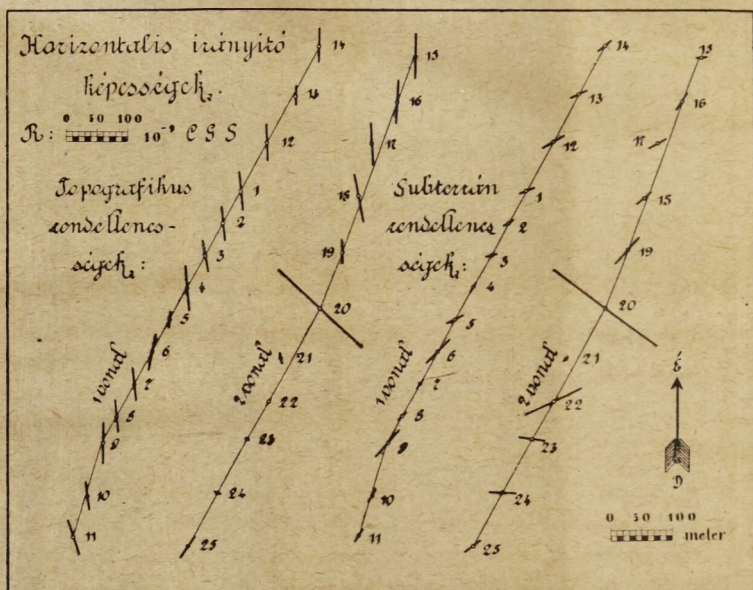 Horizontalis irányító
képességek.
R: 0 50 100 10⁻⁹ C G S
Topografikus
rendellenes-
ségek:
Subterrán
rendellenes
ségek:
14
13
12
1
2
3
4
5
6
7
8
9
10
11
1 vonal
15
16
17
18
19
20
21
22
23
24
25
2 vonal
14
13
12
1
2
3
4
5
6
7
8
9
10
11
1 vonal
15
16
17
18
19
20
21
22
23
24
25
2 vonal
É
D
0 50 100
meter